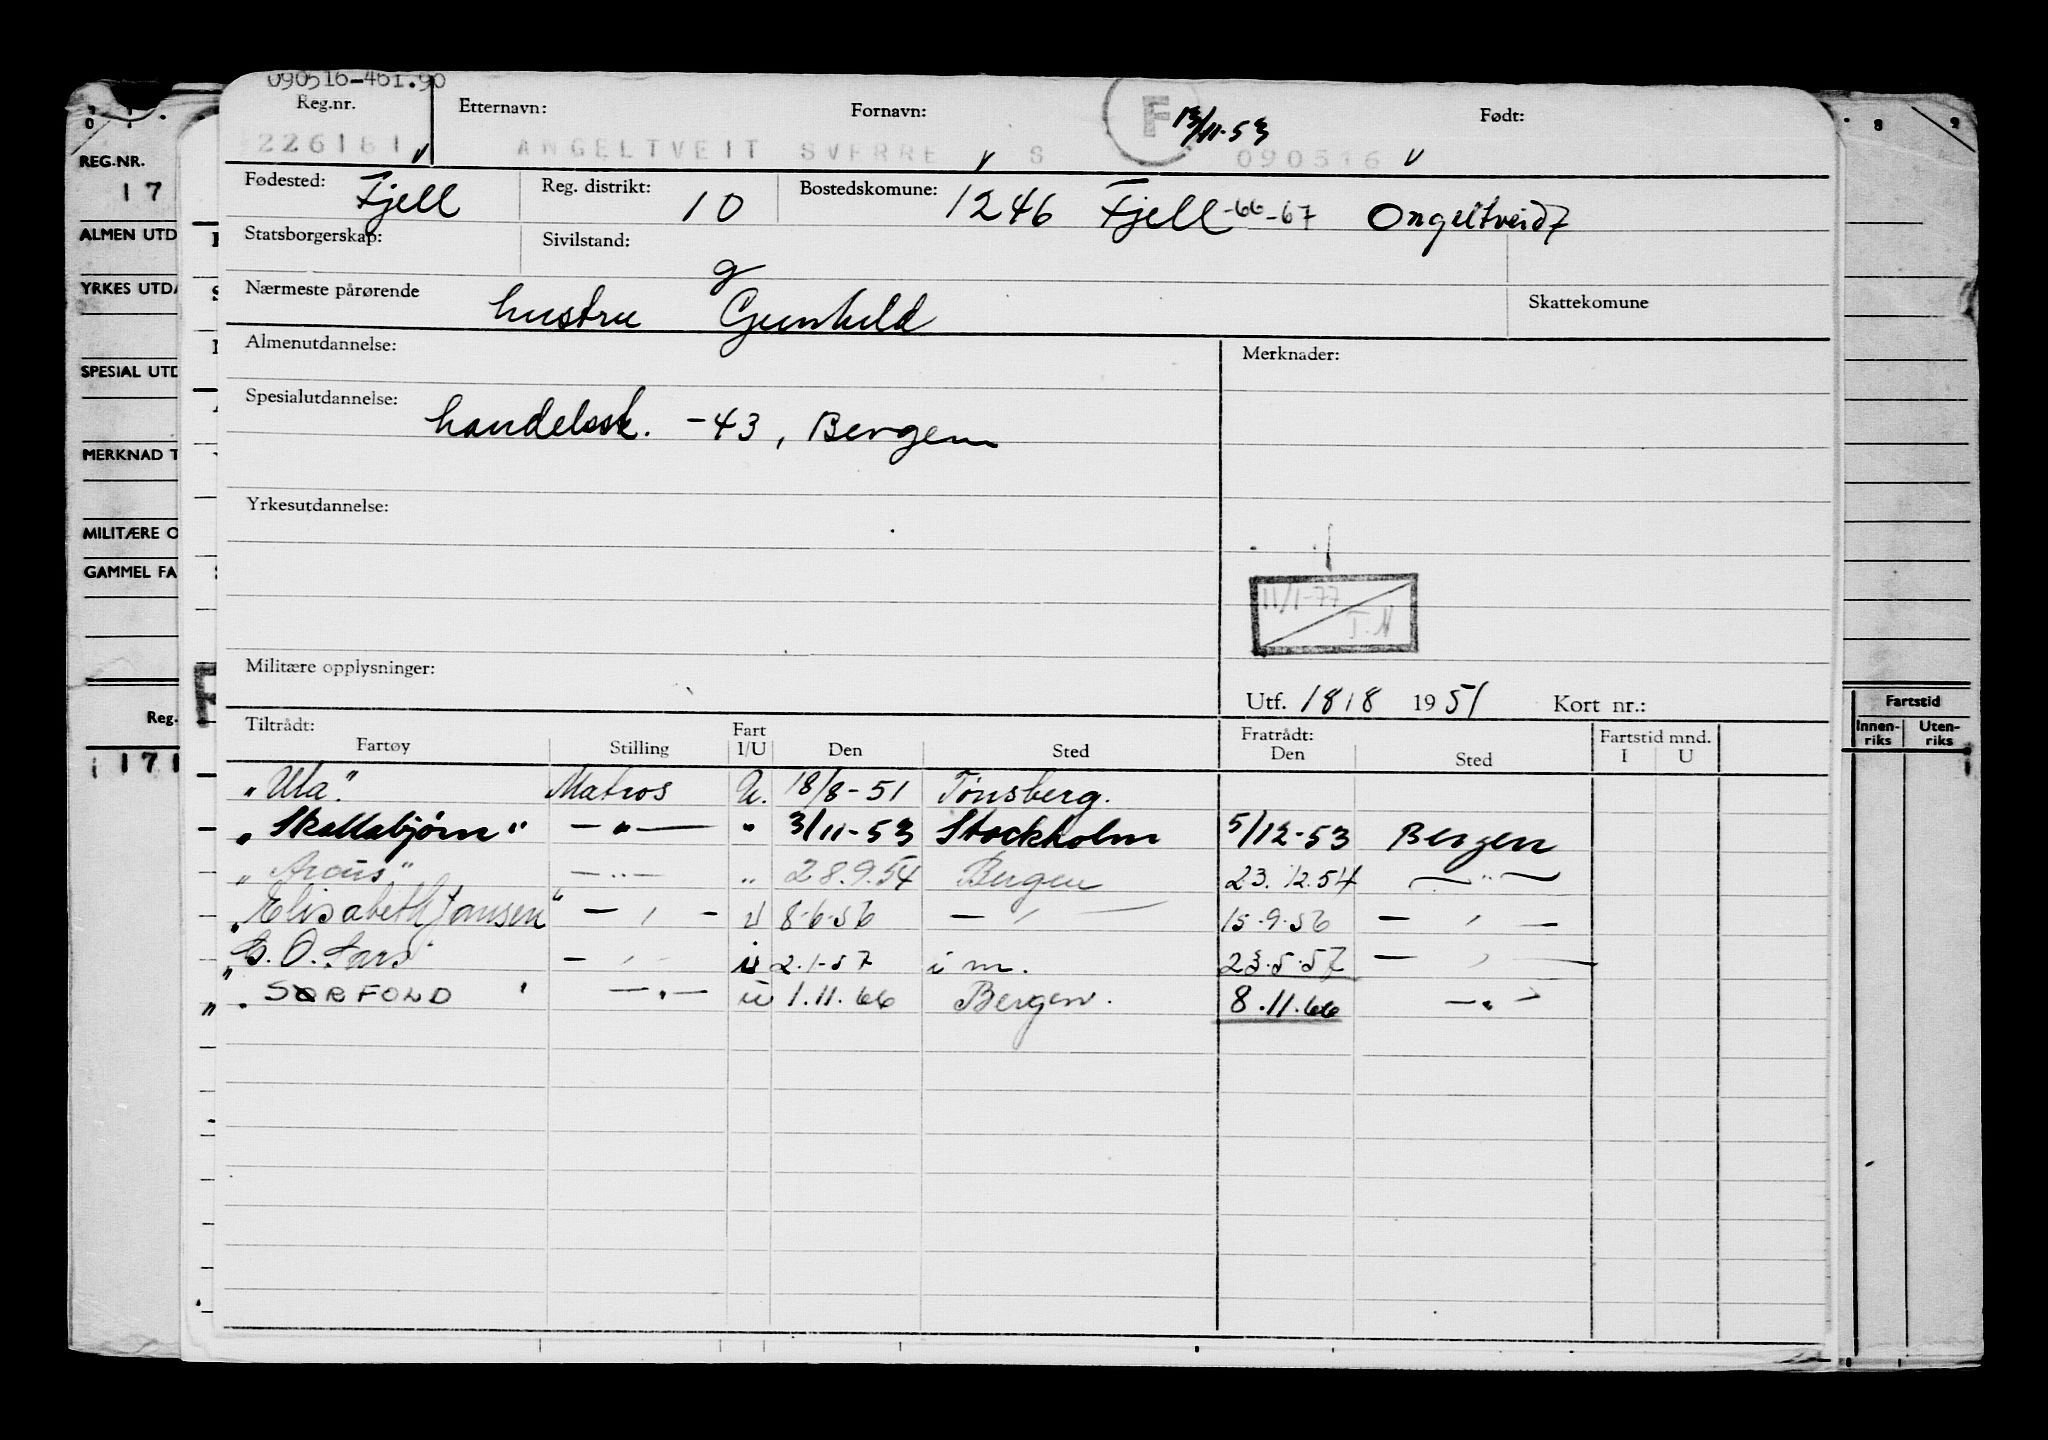 090516-461.90
Reg.nr. Etternavn: Fornavn: F 13/11-53 Født:
226161 v ANGELTVEIT SVERRE v S 090516 v
Fødested: Fjell Reg. distrikt: 10 Bostedskomune: 1246 Fjell -66-67 Ongeltveidt
Statsborgerskap: Sivilstand: g
Nærmeste pårørende hustru Gunhild Skattekomune
Almenutdannelse: Merknader:
Spesialutdannelse: handelssk. -43, Bergen
Yrkesutdannelse:
11/1-77
T.N
Militære opplysninger:
Utf. 18/8 1951 Kort nr.:
Tiltrådt: Fart Fratrådt: Fartstid mnd.
Fartøy Stilling 1/U Den Sted Den Sted I U
"Ula" Matros U. 18/8-51 Tønsberg.
"Skallabjørn" — " — " 3/11-53 Stockholm 5/12-53 Bergen
"Arcus" — " — " 28.9.54 Bergen 23.12.54 — " —
"Elisabeth Jansen" — " — U 8-6-56 — " — 15.9.56 — " —
"G. O. Sars" — " — u 2.1-57 i m. 23.5.57 — " —
"SØRFOLD" — " — u 1.11.66 Bergen. 8.11.66 — " —
REG.NR.
17
ALMEN UTD
YRKES UTDA
SPESIAL UTD
MERKNAD T
MILITÆRE O
GAMMEL FA
Reg.
171
F
8 9
Fartstid
Innen-riks Uten-riks